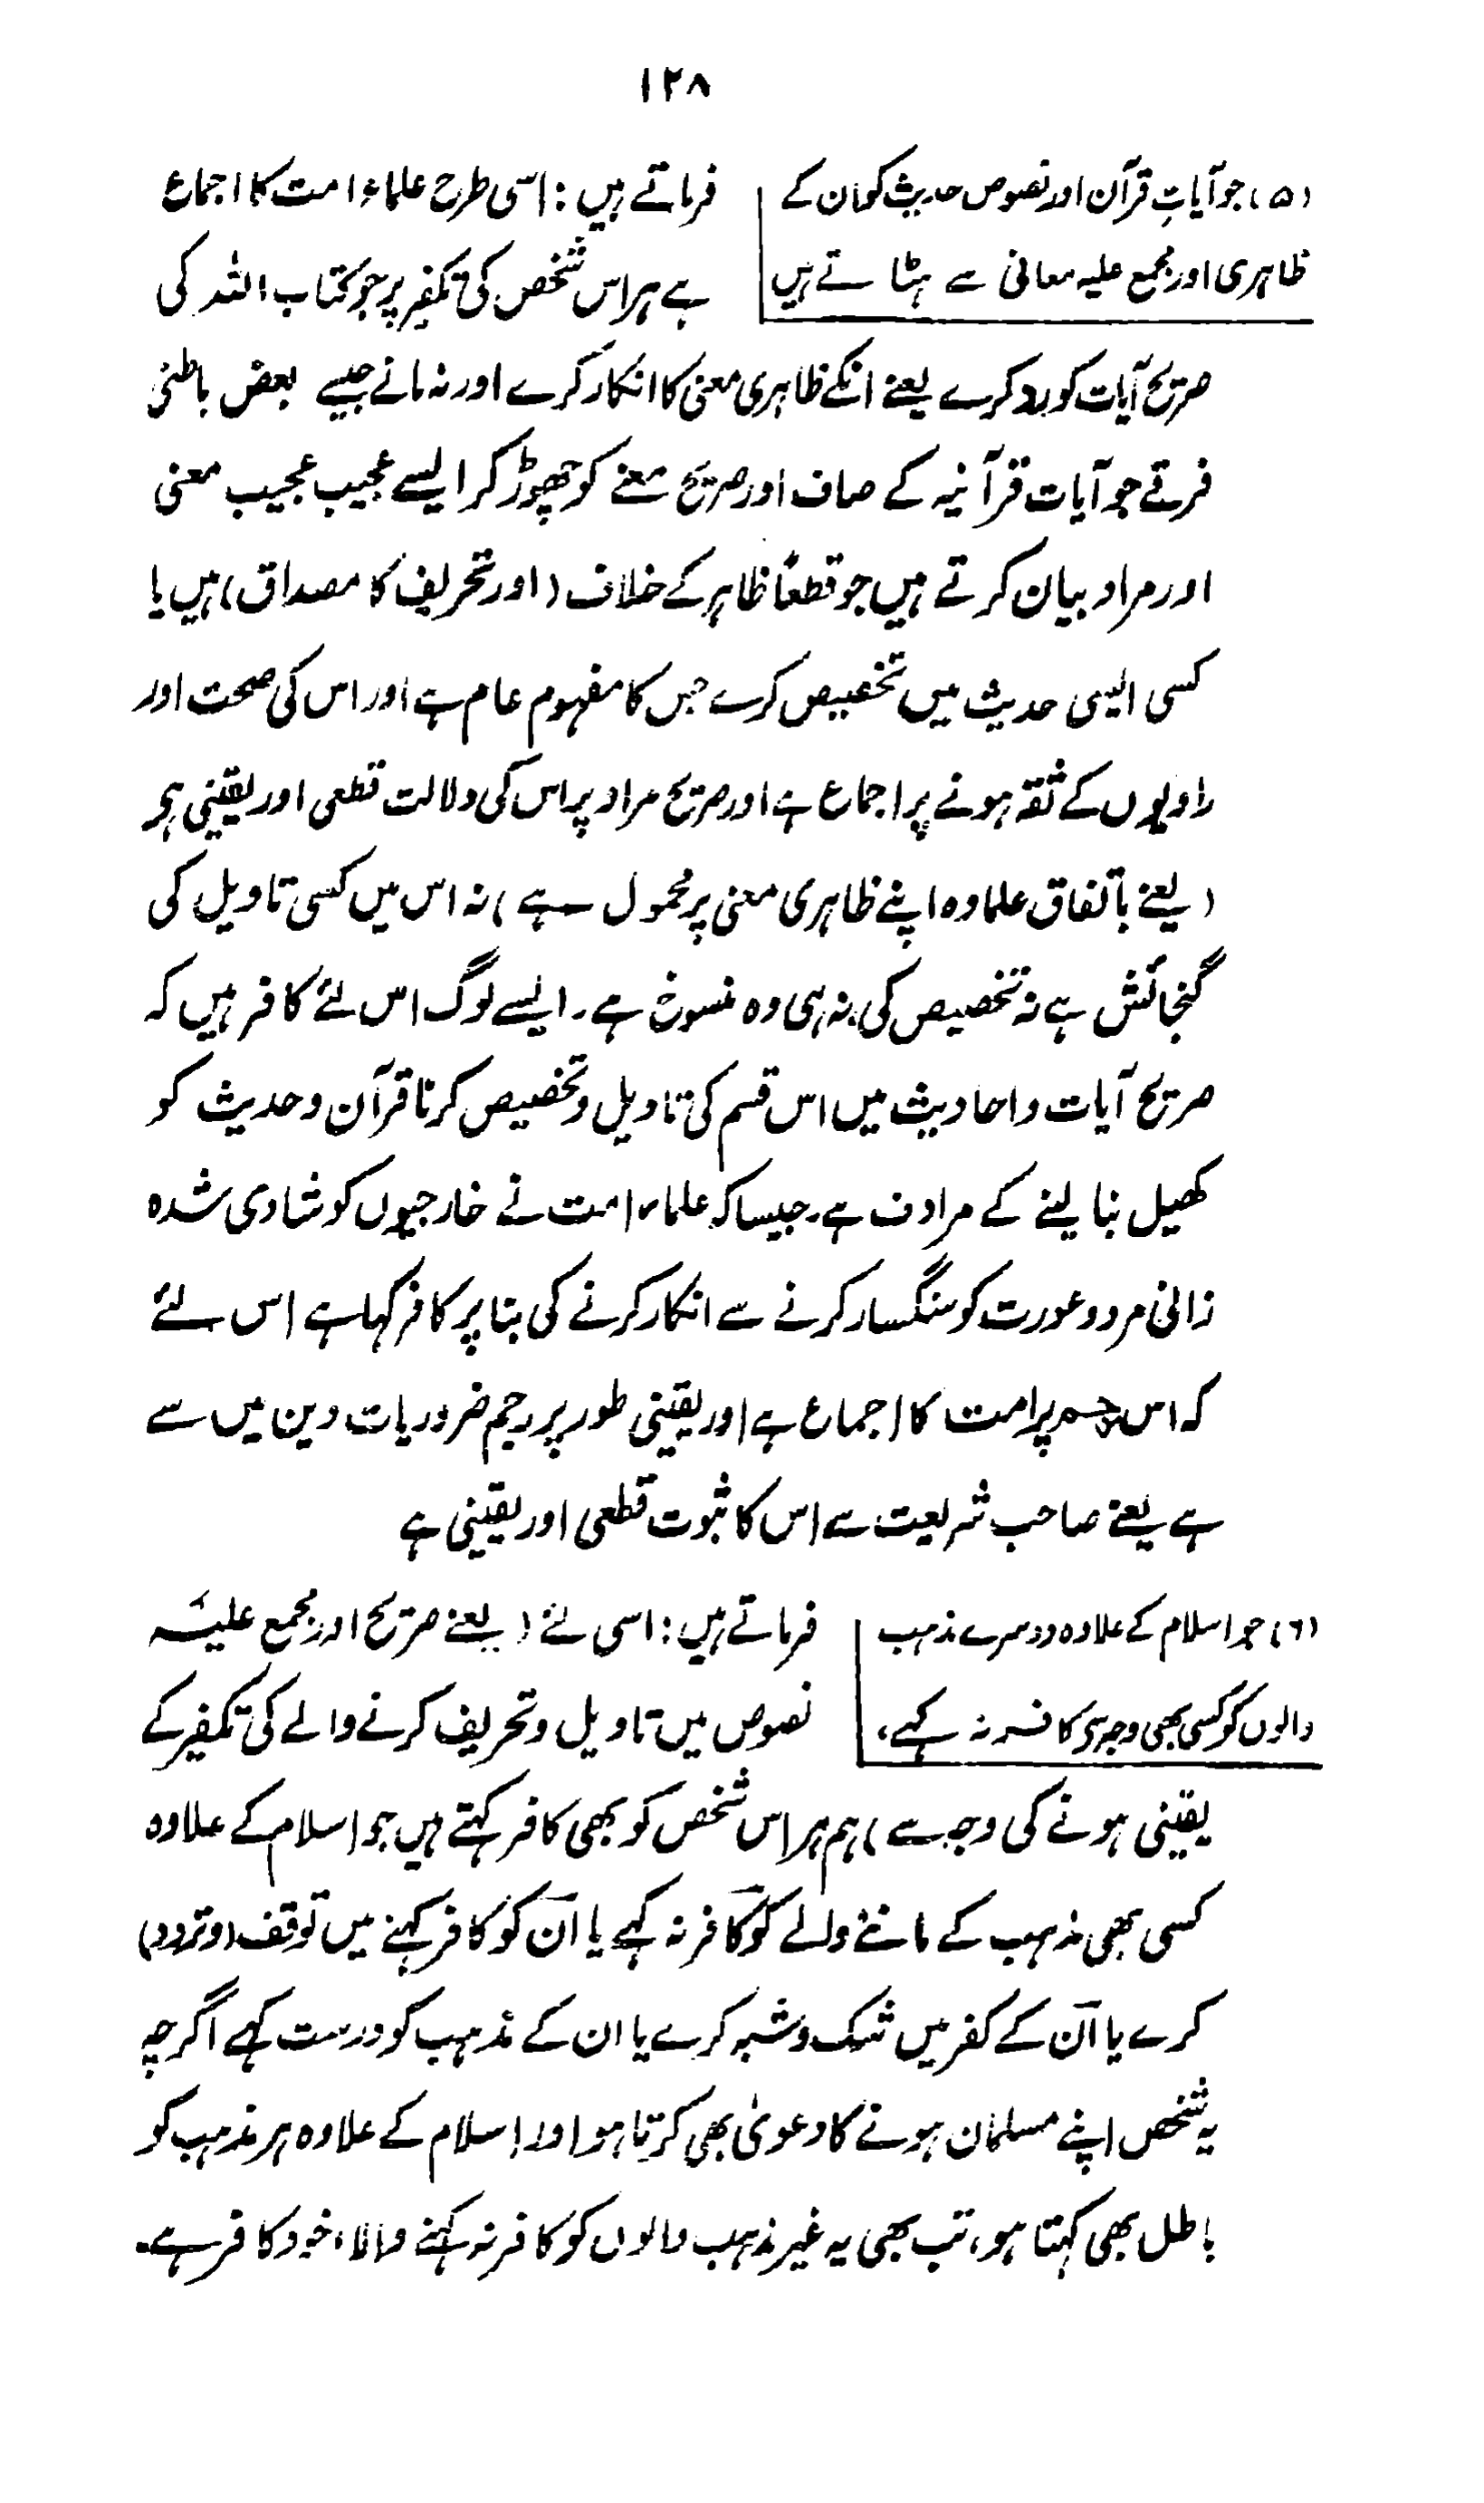 ۱۲۸
(۵) جو آیاتِ قرآن اور نصوص حدیث کو ان کے
ظاہری اور مجمع علیہ معانی سے ہٹاتے ہیں
فرماتے ہیں: اسی طرح علماء امت کا اجماع
ہے ہر اس شخص کی تکفیر پر جو کتاب اللہ کی
صریح آیات کو رد کرے یعنے انکے ظاہری معنی کا انکار کرے اور نہ مانے جیسے بعض باطنی
فرقے جو آیات قرآنیہ کے صاف اور صریح معنے کو چھوڑ کر ایسے عجیب عجیب معنی
اور مراد بیان کرتے ہیں جو قطعًا ظاہر کے خلاف (اور تحریف کا مصداق) ہیں یا
کسی ایسی حدیث میں تخصیص کرے جس کا مفہوم عام ہے اور اس کی صحت اور
راویوں کے ثقہ ہونے پر اجماع ہے اور صریح مراد پر اس کی دلالت قطعی اور یقینی ہو
(یعنے باتفاق علماء وہ اپنے ظاہری معنی پر محمول ہے) نہ اس میں کسی تاویل کی
گنجائش ہے نہ تخصیص کی نہ ہی وہ منسوخ ہے۔ ایسے لوگ اس لئے کافر ہیں کہ
صریح آیات و احادیث میں اس قسم کی تاویل و تخصیص کرنا قرآن و حدیث کو
کھیل بنا لینے کے مرادف ہے۔ جیسا کہ علماء امت نے خارجیوں کو شادی شدہ
زانی مرد و عورت کو سنگسار کرنے سے انکار کرنے کی بنا پر کافر کہا ہے اس لئے
کہ اس پر امت کا اجماع ہے اور یقینی طور پر رجم ضروریات دین میں سے
ہے یعنے صاحب شریعت سے اس کا ثبوت قطعی اور یقینی ہے
(۶) جو اسلام کے علاوہ دوسرے مذہب
والوں کو کسی بھی وجہ سے کافر نہ کہے،
فرماتے ہیں: اسی لئے (یعنے صریح اور مجمع علیہ
نصوص میں تاویل و تحریف کرنے والے کی تکفیر کے
یقینی ہونے کی وجہ سے) ہم ہر اس شخص کو بھی کافر کہتے ہیں جو اسلام کے علاوہ
کسی بھی مذہب کے ماننے والے کو کافر نہ کہے یا ان کو کافر کہنے میں توقف (و تردد)
کرے یا ان کے کفر میں شک و شبہ کرے یا ان کے مذہب کو درست کہے اگرچہ
یہ شخص اپنے مسلمان ہونے کا دعویٰ بھی کرتا ہو اور اسلام کے علاوہ ہر مذہب کو
باطل بھی کہتا ہو، تب بھی یہ غیر مذہب والوں کو کافر نہ کہنے والا، خود کافر ہے۔